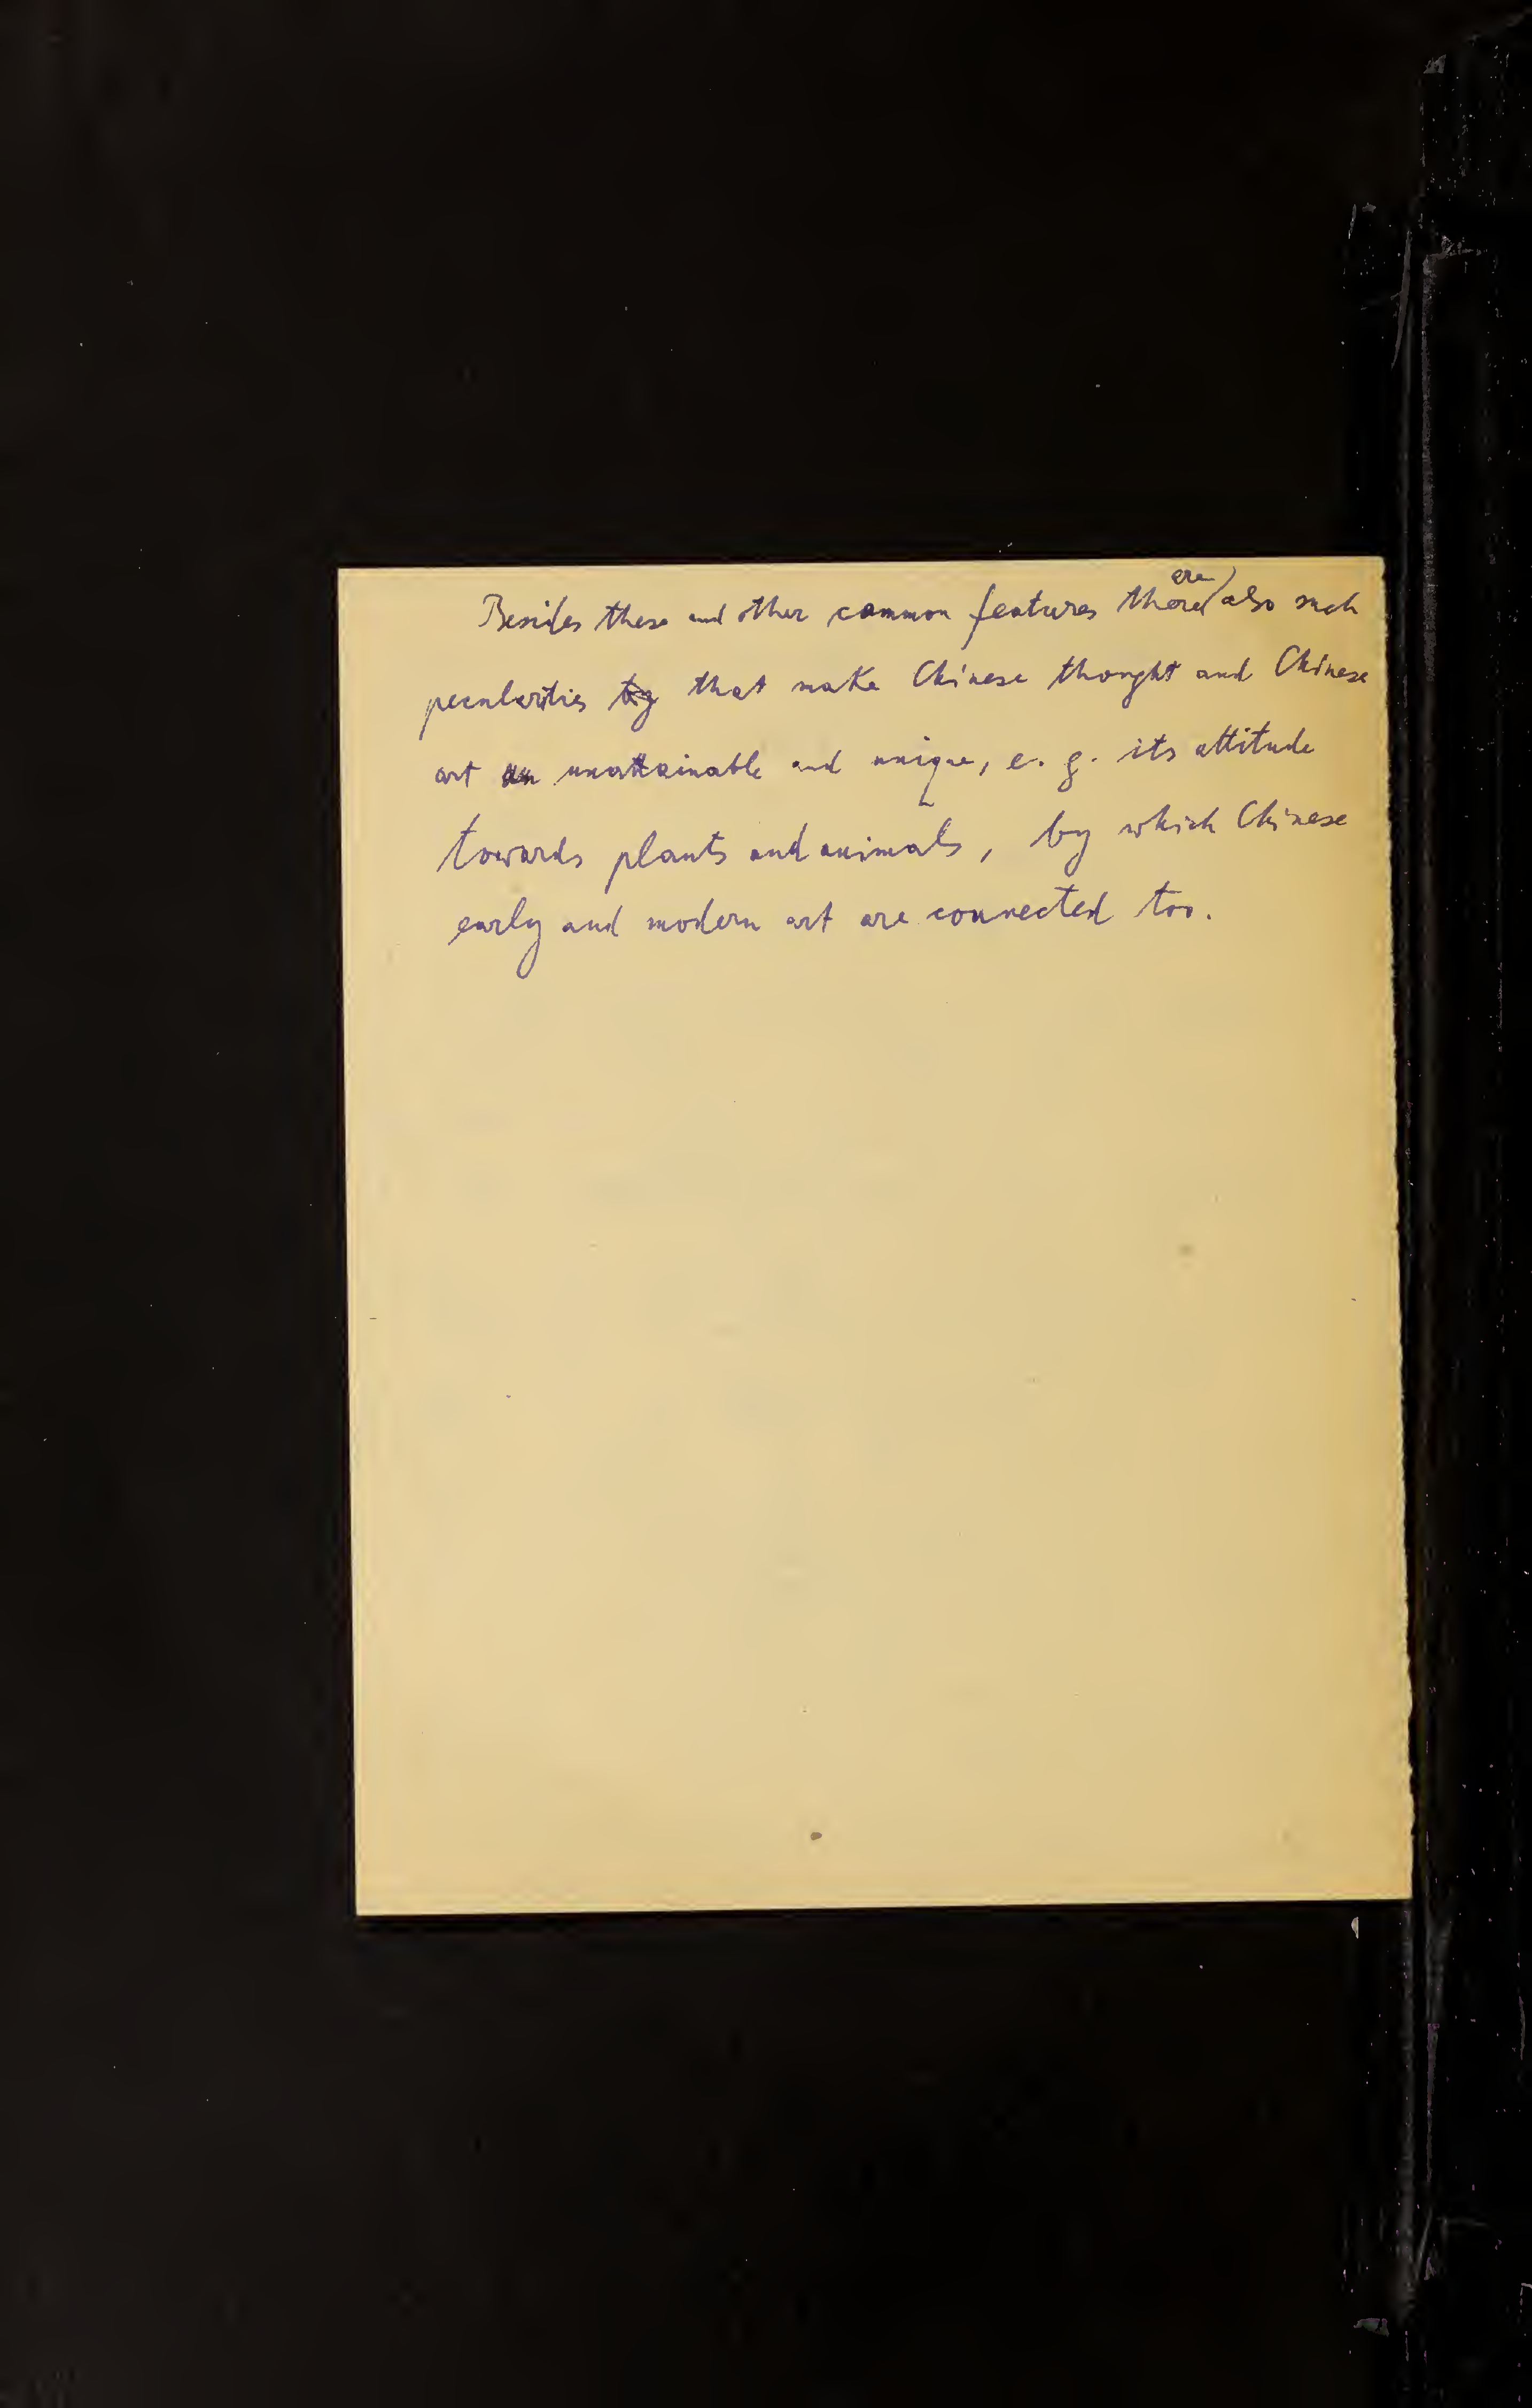 Besides these and other common features there are also such
peculartties that make Chinese thought and Chinese
art unattainable and unique, e. g. its attitude
towards plants and animals, by which Chinese
early and modern art are connected too.